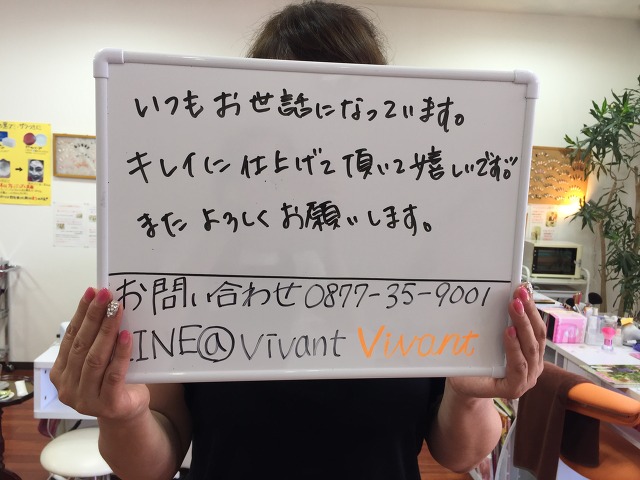 いつもお世話になっています。
キレイに仕上げて頂いて嬉しいです!!
またよろしくお願いします。
お問い合わせ0877-35-9001
LINE@vivant Vivant